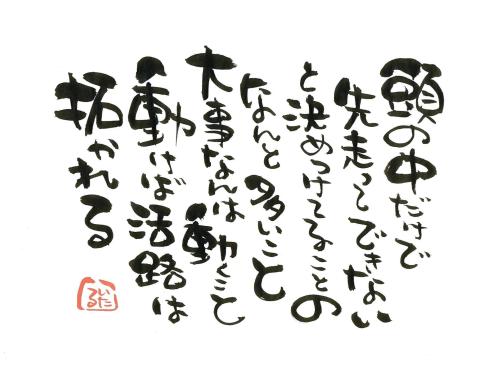 頭の中だけで
先走ってできない
と決めつけてることの
なんと多いこと
大事なんは動くこと
動けば活路は
拓かれる
いたる